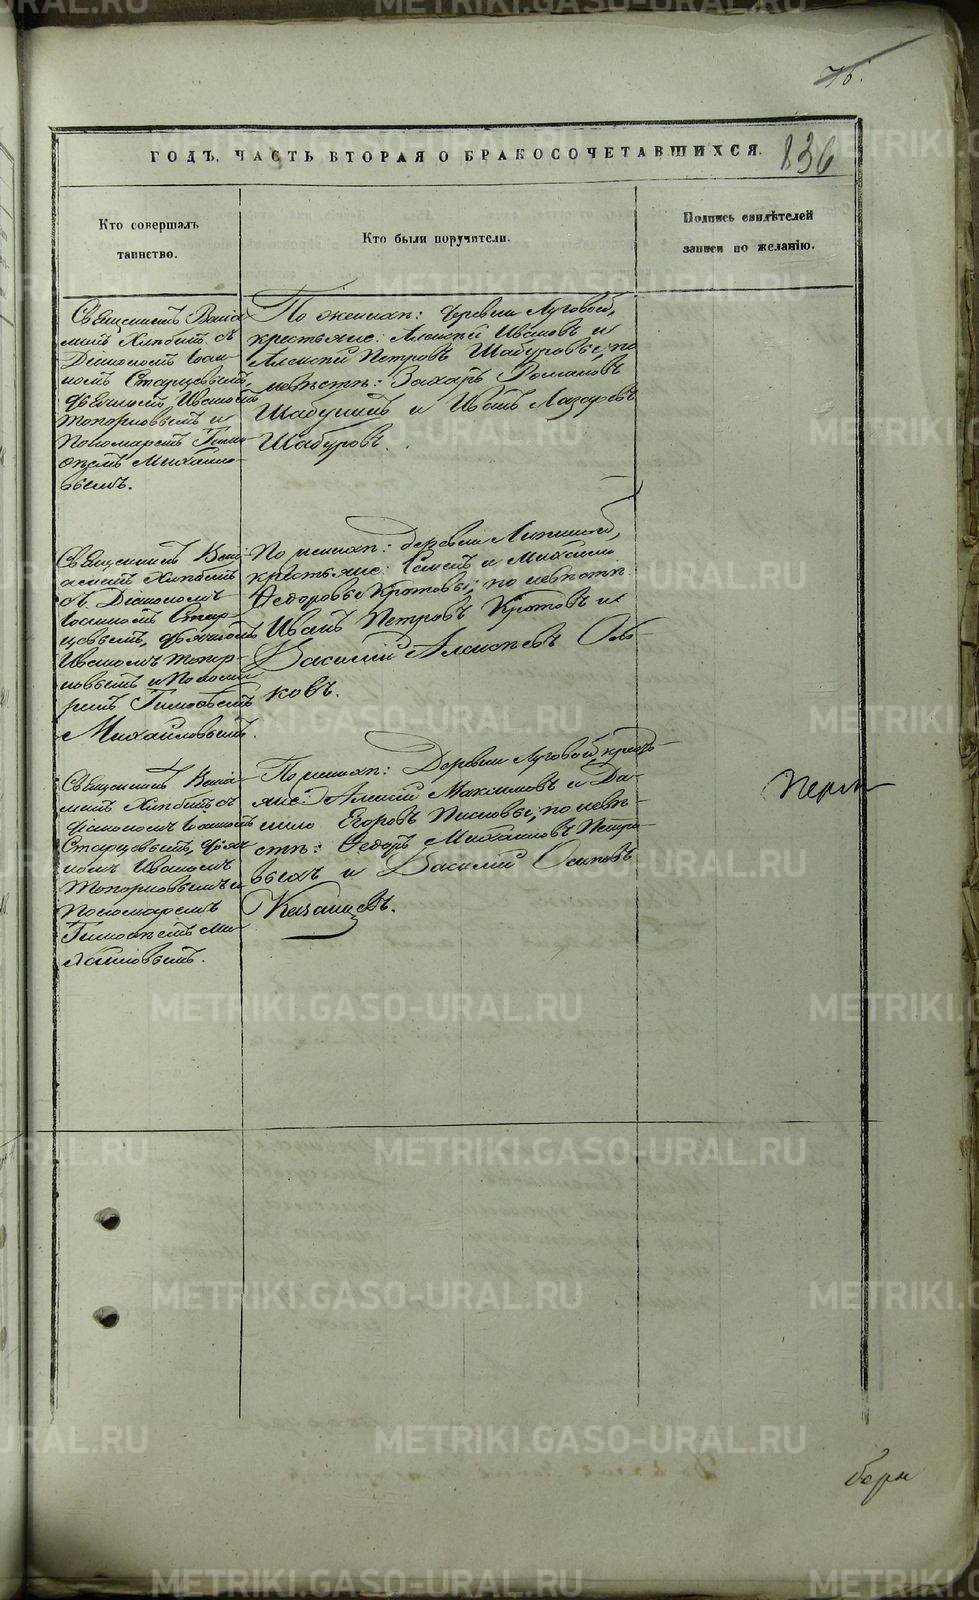 METRIKI.GASO-URAL.RU
76.
ГОДЪ, ЧАСТЬ ВТОРАЯ О БРАКОСОЧЕТАВШИХСЯ.
836
Кто совершалъ
таинство.
Кто были поручители.
Подпись свидѣтелей
записи по желанію.
Священникъ Веніа
минъ Хлѣбинъ съ
Діакономъ Іоан-
номъ Старцовымъ,
дьячкомъ Иваномъ
Топорковымъ и
Пономаремъ Тимо
ѳеемъ Михаило-
вымъ.
По женихѣ: деревни Луговой,
крестьяне: Алексѣй Ивановъ и
Алексѣй Петровъ Шабуровы; по
невѣстѣ: Захаръ Романовъ
и Иванъ Лазаревъ
Шабуровъ.
Священникъ Вені
аминъ Хлѣбинъ
съ Діакономъ
Іоанномъ Стар-
цовымъ, дьячкомъ
Иваномъ Топор-
ковымъ и Понома
ремъ Тимоѳеемъ
Михаиловымъ.
По женихѣ: деревни
крестьяне: Семенъ и Михаило
Ѳедоровы Кротовы; по невѣстѣ
Иванъ Петровъ Кротовъ и
Василій Алексѣевъ
ковъ.
Священникъ Веніа
минъ Хлѣбинъ съ
діакономъ Іоанномъ
Старцовымъ, дьяч
комъ Иваномъ
Топорковымъ и
Пономаремъ
Тимоѳеемъ Ми
хаиловымъ.
По женихѣ: Деревни Луговой кресть
яне: Алексѣй Максимовъ и Да-
нило Егоровъ по невѣ-
стѣ: Ѳедоръ Михаиловъ Петро-
выхъ и Василій Осиповъ
Казанцевъ.